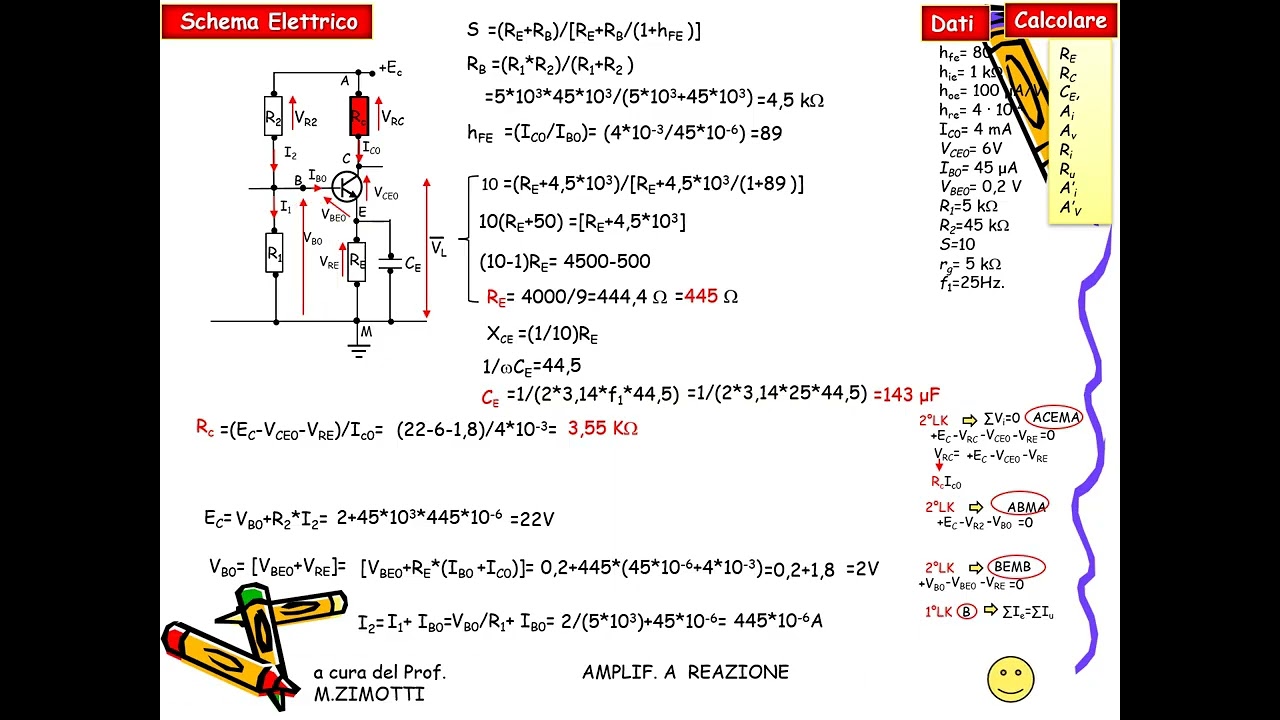 Schema Elettrico
Dati
Calcolare
S =(RE+RB)/[RE+RB/(1+hFE )]
RB =(R1*R2)/(R1+R2 )
=5*10³*45*10³/(5*10³+45*10³) =4,5 kΩ
hFE =(IC0/IB0)= (4*10⁻³/45*10⁻⁶) =89
10 =(RE+4,5*10³)/[RE+4,5*10³/(1+89 )]
10(RE+50) =[RE+4,5*10³]
(10-1)RE= 4500-500
RE= 4000/9=444,4 Ω =445 Ω
XCE =(1/10)RE
1/ωCE=44,5
CE =1/(2*3,14*f1*44,5) =1/(2*3,14*25*44,5) =143 µF
Rc =(EC-VCE0-VRE)/Ic0= (22-6-1,8)/4*10⁻³= 3,55 KΩ
EC= VB0+R2*I2= 2+45*10³*445*10⁻⁶ =22V
VB0= [VBE0+VRE]= [VBE0+RE*(IB0 +IC0)]= 0,2+445*(45*10⁻⁶+4*10⁻³)=0,2+1,8 =2V
I2=I1+ IB0=VB0/R1+ IB0= 2/(5*10³)+45*10⁻⁶= 445*10⁻⁶A
A
+Ec
R2
VR2
Rc
VRC
I2
IC0
C
B
IB0
VCE0
I1
VBE0
E
VB0
R1
VRE
RE
CE
VL
M
hfe= 80
hie= 1 kΩ
hoe= 100 µA/V
hre= 4 · 10
IC0= 4 mA
VCE0= 6V
IB0= 45 µA
VBE0= 0,2 V
R1=5 kΩ
R2=45 kΩ
S=10
rg= 5 kΩ
f1=25Hz.
RE
RC
CE,
Ai
Av
Ri
Ru
A'i
A'V
2°LK ⇨ ∑Vi=0 ACEMA
+EC -VRC -VCE0 -VRE =0
VRC= +EC -VCE0 -VRE
RcIc0
2°LK ⇨ ABMA
+EC -VR2 -VB0 =0
2°LK ⇨ BEMB
+VB0 -VBE0 -VRE =0
1°LK B ⇨ ∑Ie=∑Iu
a cura del Prof.
M.ZIMOTTI
AMPLIF. A REAZIONE